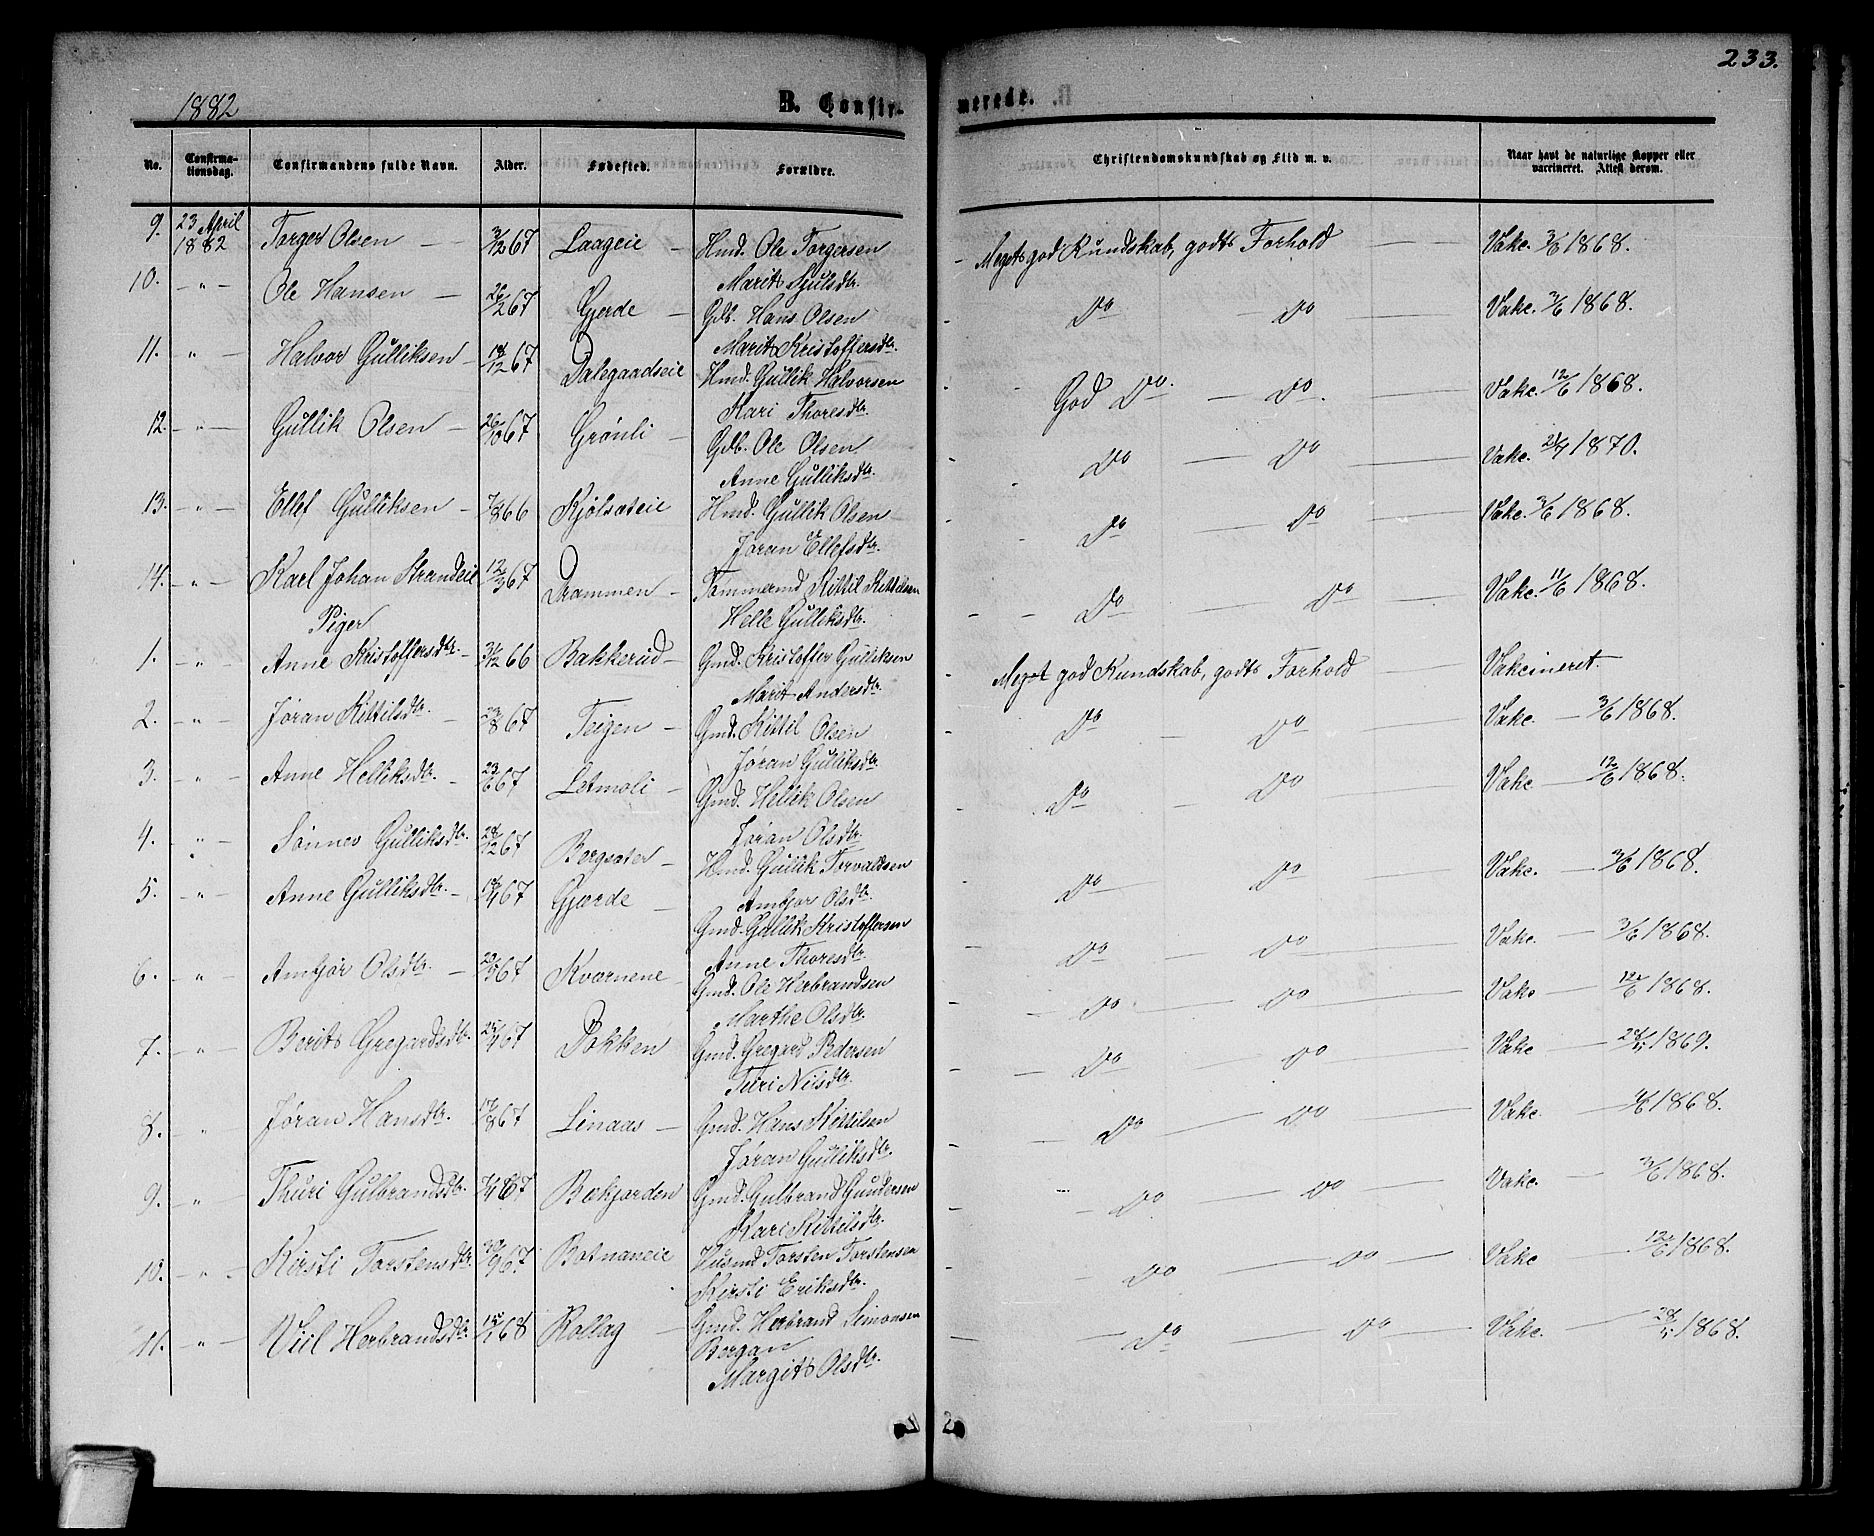 233.
1882
B. Confir-
merede.
No. Confirma-tionsdag. Confirmandens fulde Navn. Alder. Fødested. Forældre. Christendomskundskab og Flid m. v. Naar havt de naturlige Kopper eller vaccineret. Attest derom.
9. 23 April 1882 Torger Olsen — 3/12 67 Laageie — Hmd. Ole Torgersen
Marit Gjulsdtr.
Meget god Kundskab, godt Forhold — Vakc. 3/6 1868.
10. — " — Ole Hansen — 26/12 67 Gjerde — Gdb. Hans Olsen
Marit Kristoffersdtr.
Do — Do Vakc. 3/6 1868.
11. " — Halvor Gulliksen — 18/12 67 Dalegaadseie Hmd. Gullik Halvorsen
Kari Thoresdtr.
God Do. — Do. — Vakc. 12/6 1868.
12. — " — Gullik Olsen — 26/10 67 Grønli — Gdb. Ole Olsen
Anne Gulliksdtr.
Do — Do — Vakc. 21/7 1870.
13. — " — Ellef Gulliksen — 7/8 66 Kjølsæteie Hmd. Gullik Olsen
Jøran Ellefsdtr.
Do — Do — Vakc. 3/6 1868.
14. — " — Karl Johan Strandeie 12/3 67 Drammen — Tømmermd Kittil Kittelsen
Helle Gulliksdtr.
Do — Do — Vakc. 11/6 1868.
Piger
1. — " — Anne Kristoffersdtr. — 31/12 66 Bakkerud — Gmd. Kristoffer Gulliksen
Marit Andersdtr.
Meget god Kundskab, godt Forhold — Vakcineret.
2. — " — Jøran Kittilsdtr. — 23/8 67 Teigen — Gmd. Kittil Olsen
Jøran Gulliksdtr.
Do — Do — Vakc. — 3/6 1868.
3. " — Anne Helliksdtr. — 23/6 67 Letmoli — Gmd. Hellik Olsen
Jøran Olsdtr.
Do — Do — Vakc — 12/6 1868.
4. — " — Sønnev Gulliksdtr. 28/12 67 Bergsæter — Hmd. Gullik Torvaldsen
Ambjør Olsdtr.
Do — Do — Vakc. — 3/6 1868.
5. — " — Anne Gulliksdtr. — 18/4 67 Gjærde — Gmd. Gullik Kristoffersen
Anne Thoresdtr.
Do — Do — Vakc. — 3/6 1868.
6. — " — Ambjør Olsdtr. — 23/5 67 Kværnene — Gmd. Ole Herbrandsen
Marthe Olsdtr.
Do — Do — Vakc — 12/6 1868.
7. — " — Berit Gregardsdtr. 25/4 67 Dokken Gmd. Gregard Pedersen
Turi Nilsdtr.
Do — Do — Vakc — 1869.
8. " — Jøran Hansdtr. 17/8 67 Linaas — Gmd. Hans Kittilsen
Jøran Gulliksdtr.
Do — Do — Vakc. — 1868.
9. " — Thuri Gulbrandsdtr. 7/4 67 Bekjorden Gmd. Gulbrand Gundersen
Kari Kittilsdtr.
Do — Do — Vakc. — 3/6 1868.
10. — " — Kirsti Torstensdtr. 30/9 67. Botnaneie Husmd Torsten Torstensen
Kirsti Eriksdtr.
Do — Do — Vakc — 12/6 1868.
11. — " — Viil Herbrandsdtr. 15/1 68 Rollag — Gmd. Herbrand Simonsen
Bergan
Margit Olsdtr.
Do — Do — Vakc. — 1868.